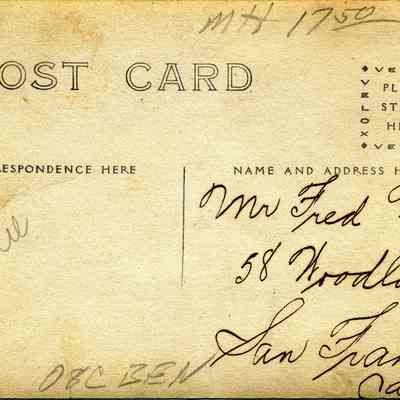 MH 1750
OST CARD
VE
PL
ST
H
VE
VELOX
RESPONDENCE HERE
NAME AND ADDRESS H
Mr Fred
58 Woodl
San Fran
Ca
08C BEN